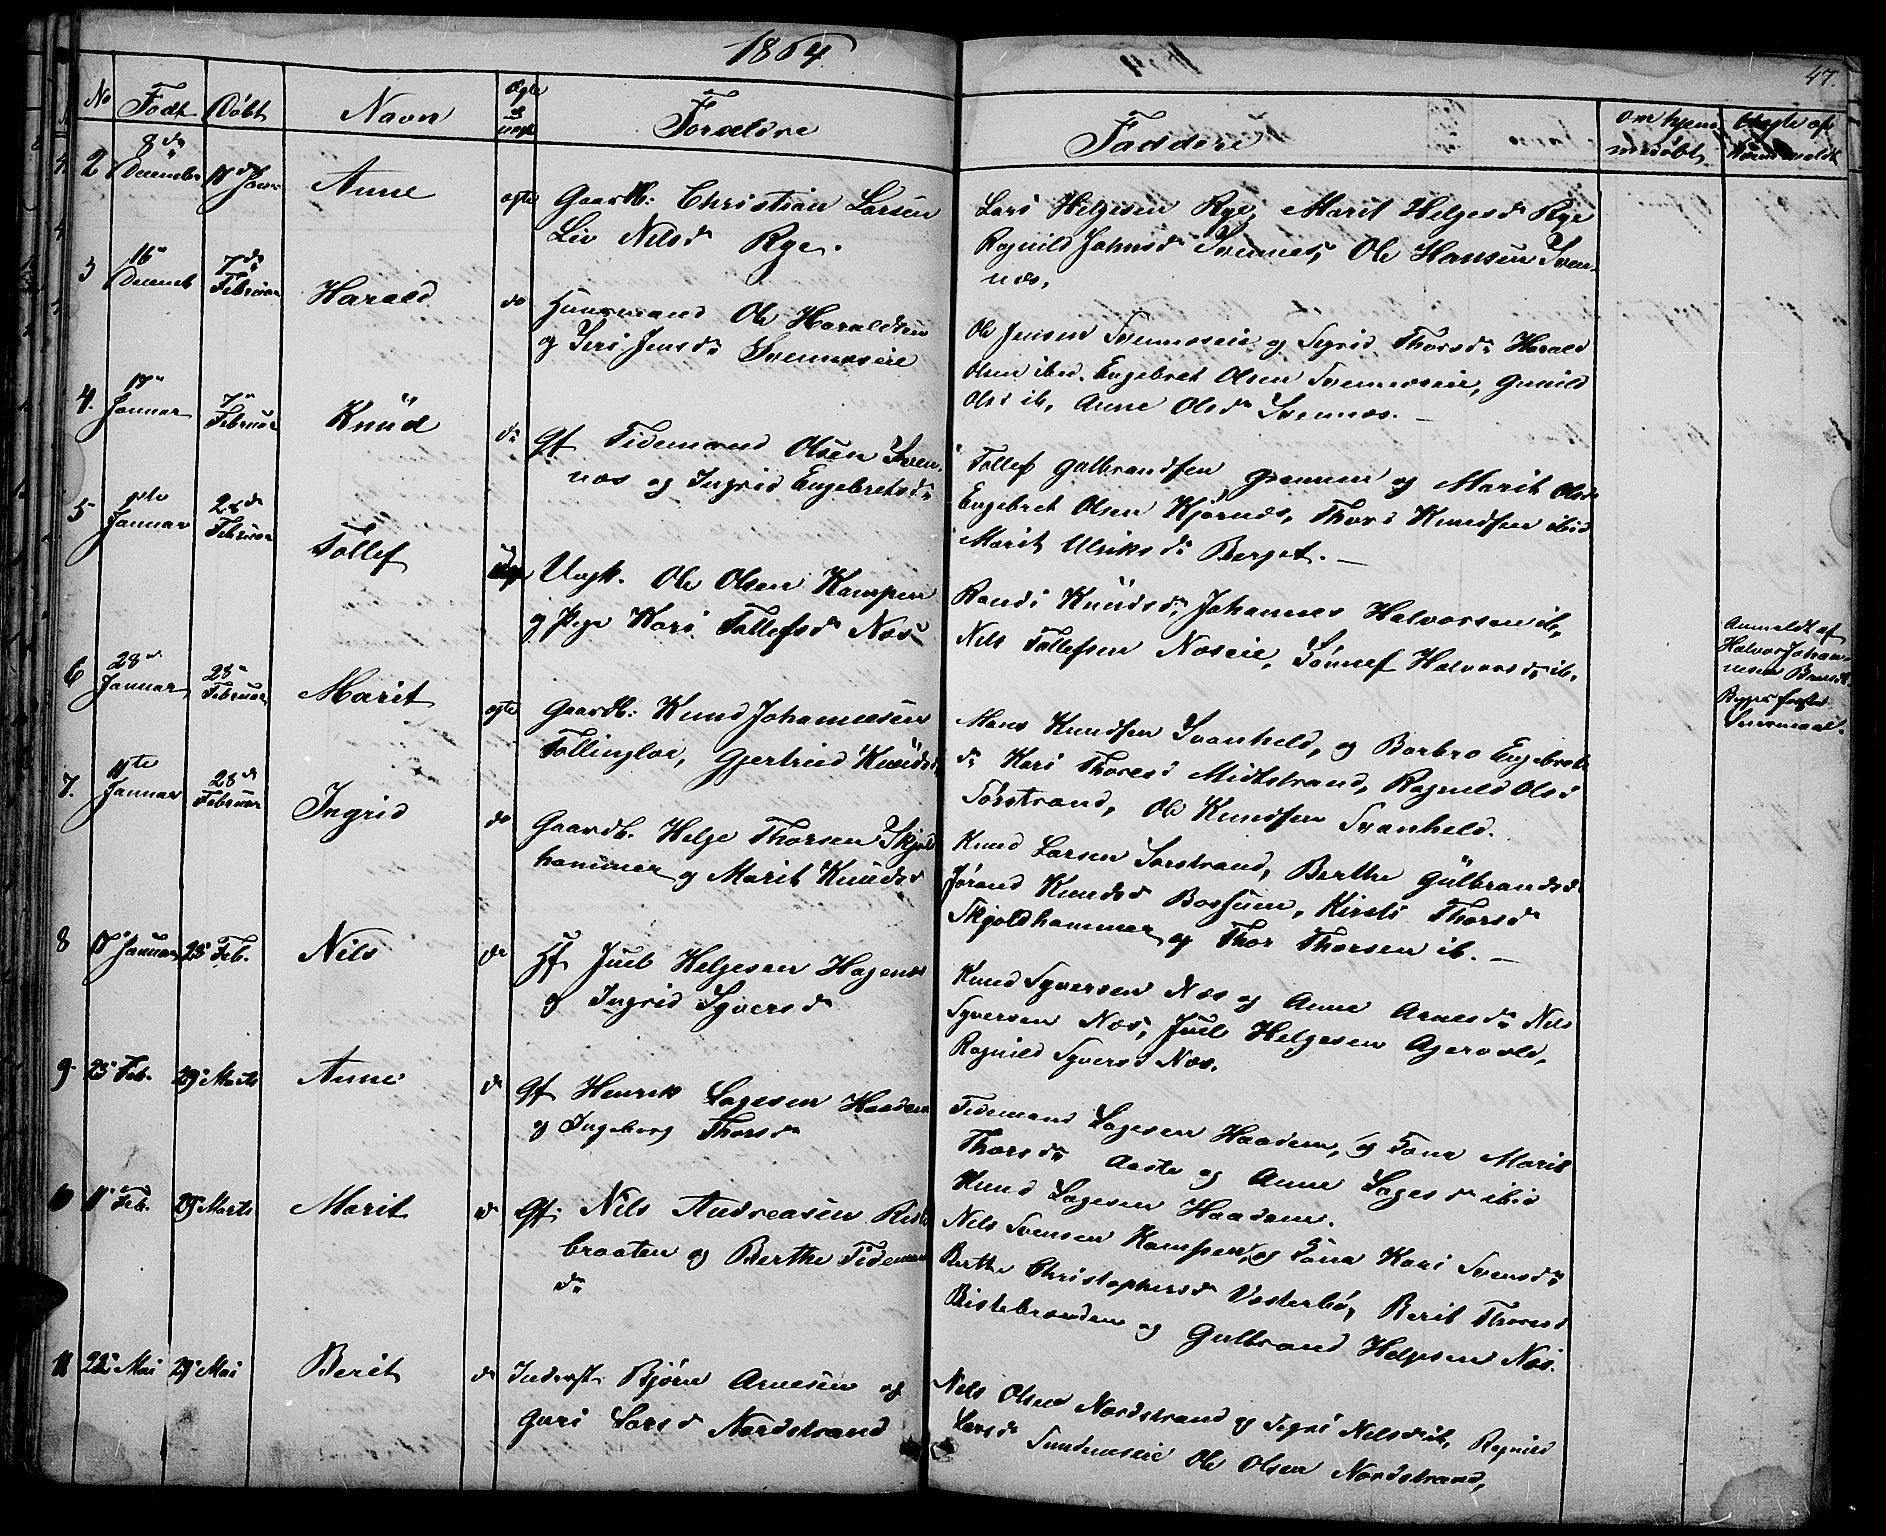 1864
47.
No Født Døbt Navn Ægte & uægt Forældre
Faddere Om hjemmedøbt
2 8de December 17de Janr Anne ægte Gaardb: Christian Larsen
Liv Nilsdr Rye.
Lars Helgesen Rye, Marit Helgesdr Rye
Ragnild Johnsdr Svennes, Ole Hansen Svennæs.
3 16de Decemb 7de Februar Harald do Huusmand Ole Haraldsen
og Siri Jensdr Svennæseie
Ole Jensen Svennæseie og Sigrid Thorsdr Harald
Olsen ibid. Engebret Olsen Svennæseie, Gunild
Olsd ib, Anne Olsdr Svennæs.
4. 17de Januar 7de Februar Knüd do Gf Tidemand Olsen Svennæs og Ingrid Engebretsdr
Tollef Gulbrandsen og Marit Olsdr
Engebret Olsen Kjørnæs, Thore Knudsen ibid
Marit Ulriksdr Berget.
5 Januar 28de Februar Tollef Uægte Ungk. Ole Olsen Kampen
og Pige Kari Tollefsdr Næs
Randi Knüdsdr, Johannes Halvorsen ib,
Nils Tollefsen Næseie, Sønnef Halvorsdr ib.
Anmeldt af
Halvor Johannesen
6 28de Januar 28de Februar Marit ægte Gaardb: Knud Johannesen
Tollingloe, Gjertrud Knüdsd
Hans Knudsen Svanheld, og Barbro Engebretsdr Kari Thoresd Midtstrand, Ragnild Olsd
Sørstrand, Ole Knudsen Svanheld.
7. 11te Januar 28de Februar Ingrid do Gaardb. Helge Thorsen Skjoldhammer og Marit Knudsd
Knud Larsen Sørstrand, Berthe Gulbrandsd
Jørand Knudsd Bossum, Kirsti Thorsdr
Skjoldhammer og Thor Thorsen ib.
8 17de Januar 28de Feb. Nils do Hf Juel Helgesen Hagenæs
og Ingrid Syversdr
Knud Syversen Næs og Anne Arnesdr Nils
Syversen Næs, Juel Helgesen Agervold,
Ragnild Syversd Næs.
9 23de Feb. 29de Marts Anne do Gf Henrik Lagesen Haadem
og Ingeborg Thorsdr
Tidemand Lagesen Haadem, og Kone Marit
Thorsdr Aaste og Anne Lagesdr ibid
Knud Lagesen Haadem.
10 11te Feb. 29de Marts Marit do Gf. Nils Andreasen
braaten og Berthe Tidemandsdr
Nils Svensen Kampen og Kone Kari Svensdr
Berthe Christophersdr Vesterbø, Berit Thoresd
og Gulbrand Helgesen Næs.
11 22de Mai 29de Mai Berit do Inderst: Bjørn Arnesen og
Guri Larsdr Nordstrand
Nils Olsen Nordstrand og Sigri Nilsdr ib, Ragnild
Larsdr Sundemseie Ole Olsen Nordstrand,